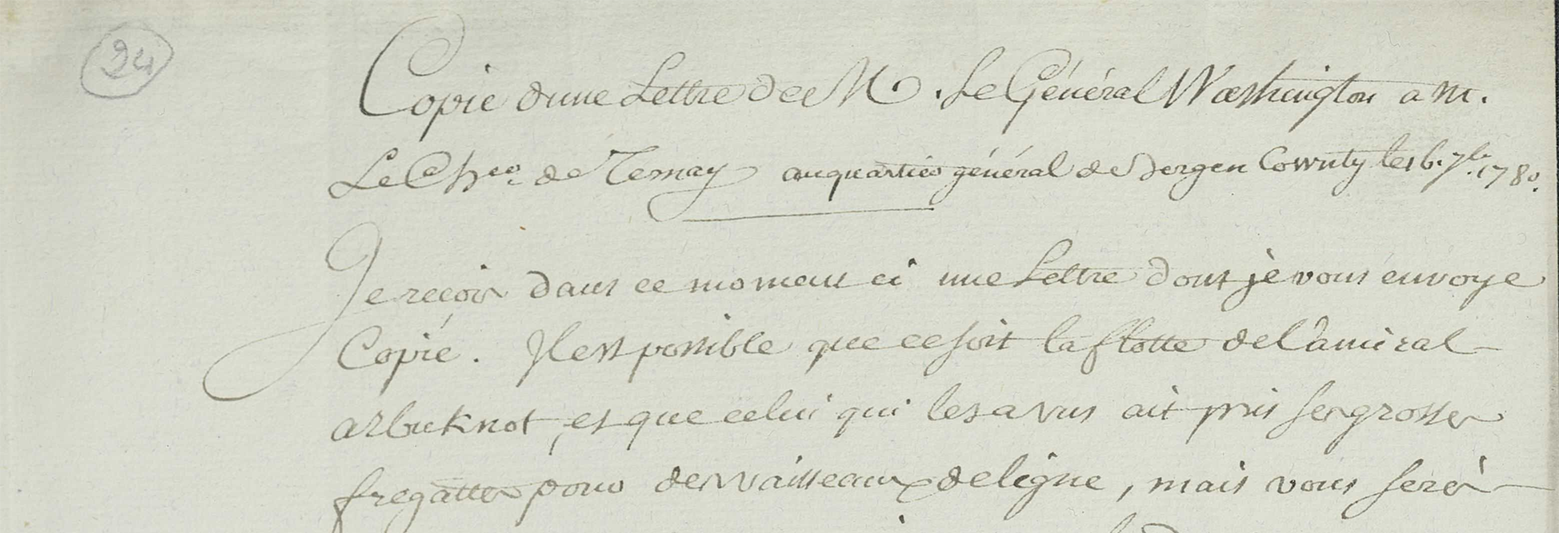 24
Copie d'une Lettre de M. Le Général Washington a M.
Le Cher. de Ternay au quartier général de Bergen Cownty le 16. 7bre. 1780.
Je reçois dans ce moment ci une Lettre dont je vous envoye
Copie. Il est possible que ce soit la flotte de l'amiral
arbuknot, et que celui qui les a vus ait pris ses grosses
fregattes pour des vaisseaux de ligne, mais vous serés